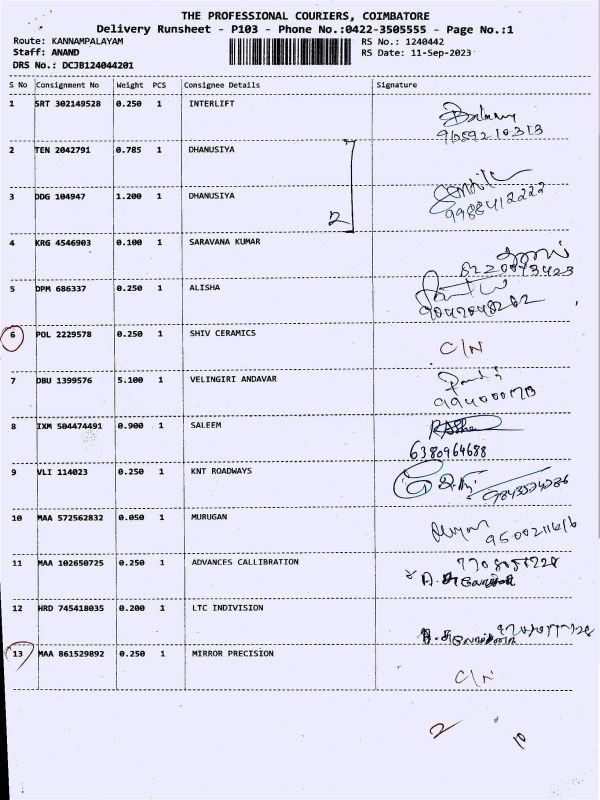 THE PROFESSIONAL COURIERS, COIMBATORE
Delivery Runsheet - P103 - Phone No.:0422-3505555 - Page No.:1
Route: KANNAMPALAYAM RS No.: 1240442
Staff: ANAND RS Date: 11-Sep-2023
DRS No.: DCJB124044201
S No Consignment No Weight PCS Consignee Details Signature
1 SRT 302149528 0.250 1 INTERLIFT
2 TEN 2042791 0.785 1 DHANUSIYA
3 DDG 104947 1.200 1 DHANUSIYA 2
9988412222
4 KRG 4546903 0.100 1 SARAVANA KUMAR
5 DPM 686337 0.250 1 ALISHA
6 POL 2229578 0.250 1 SHIV CERAMICS C/N
7 DBU 1399576 5.100 1 VELINGIRI ANDAVAR
8 IXM 504474491 0.900 1 SALEEM
6380964688
9 VLI 114023 0.250 1 KNT ROADWAYS
10 MAA 572562832 0.050 1 MURUGAN
9500211616
11 MAA 102650725 0.250 1 ADVANCES CALLIBRATION
12 HRD 745418035 0.200 1 LTC INDIVISION
13 MAA 861529892 0.250 1 MIRROR PRECISION C/N
2 10